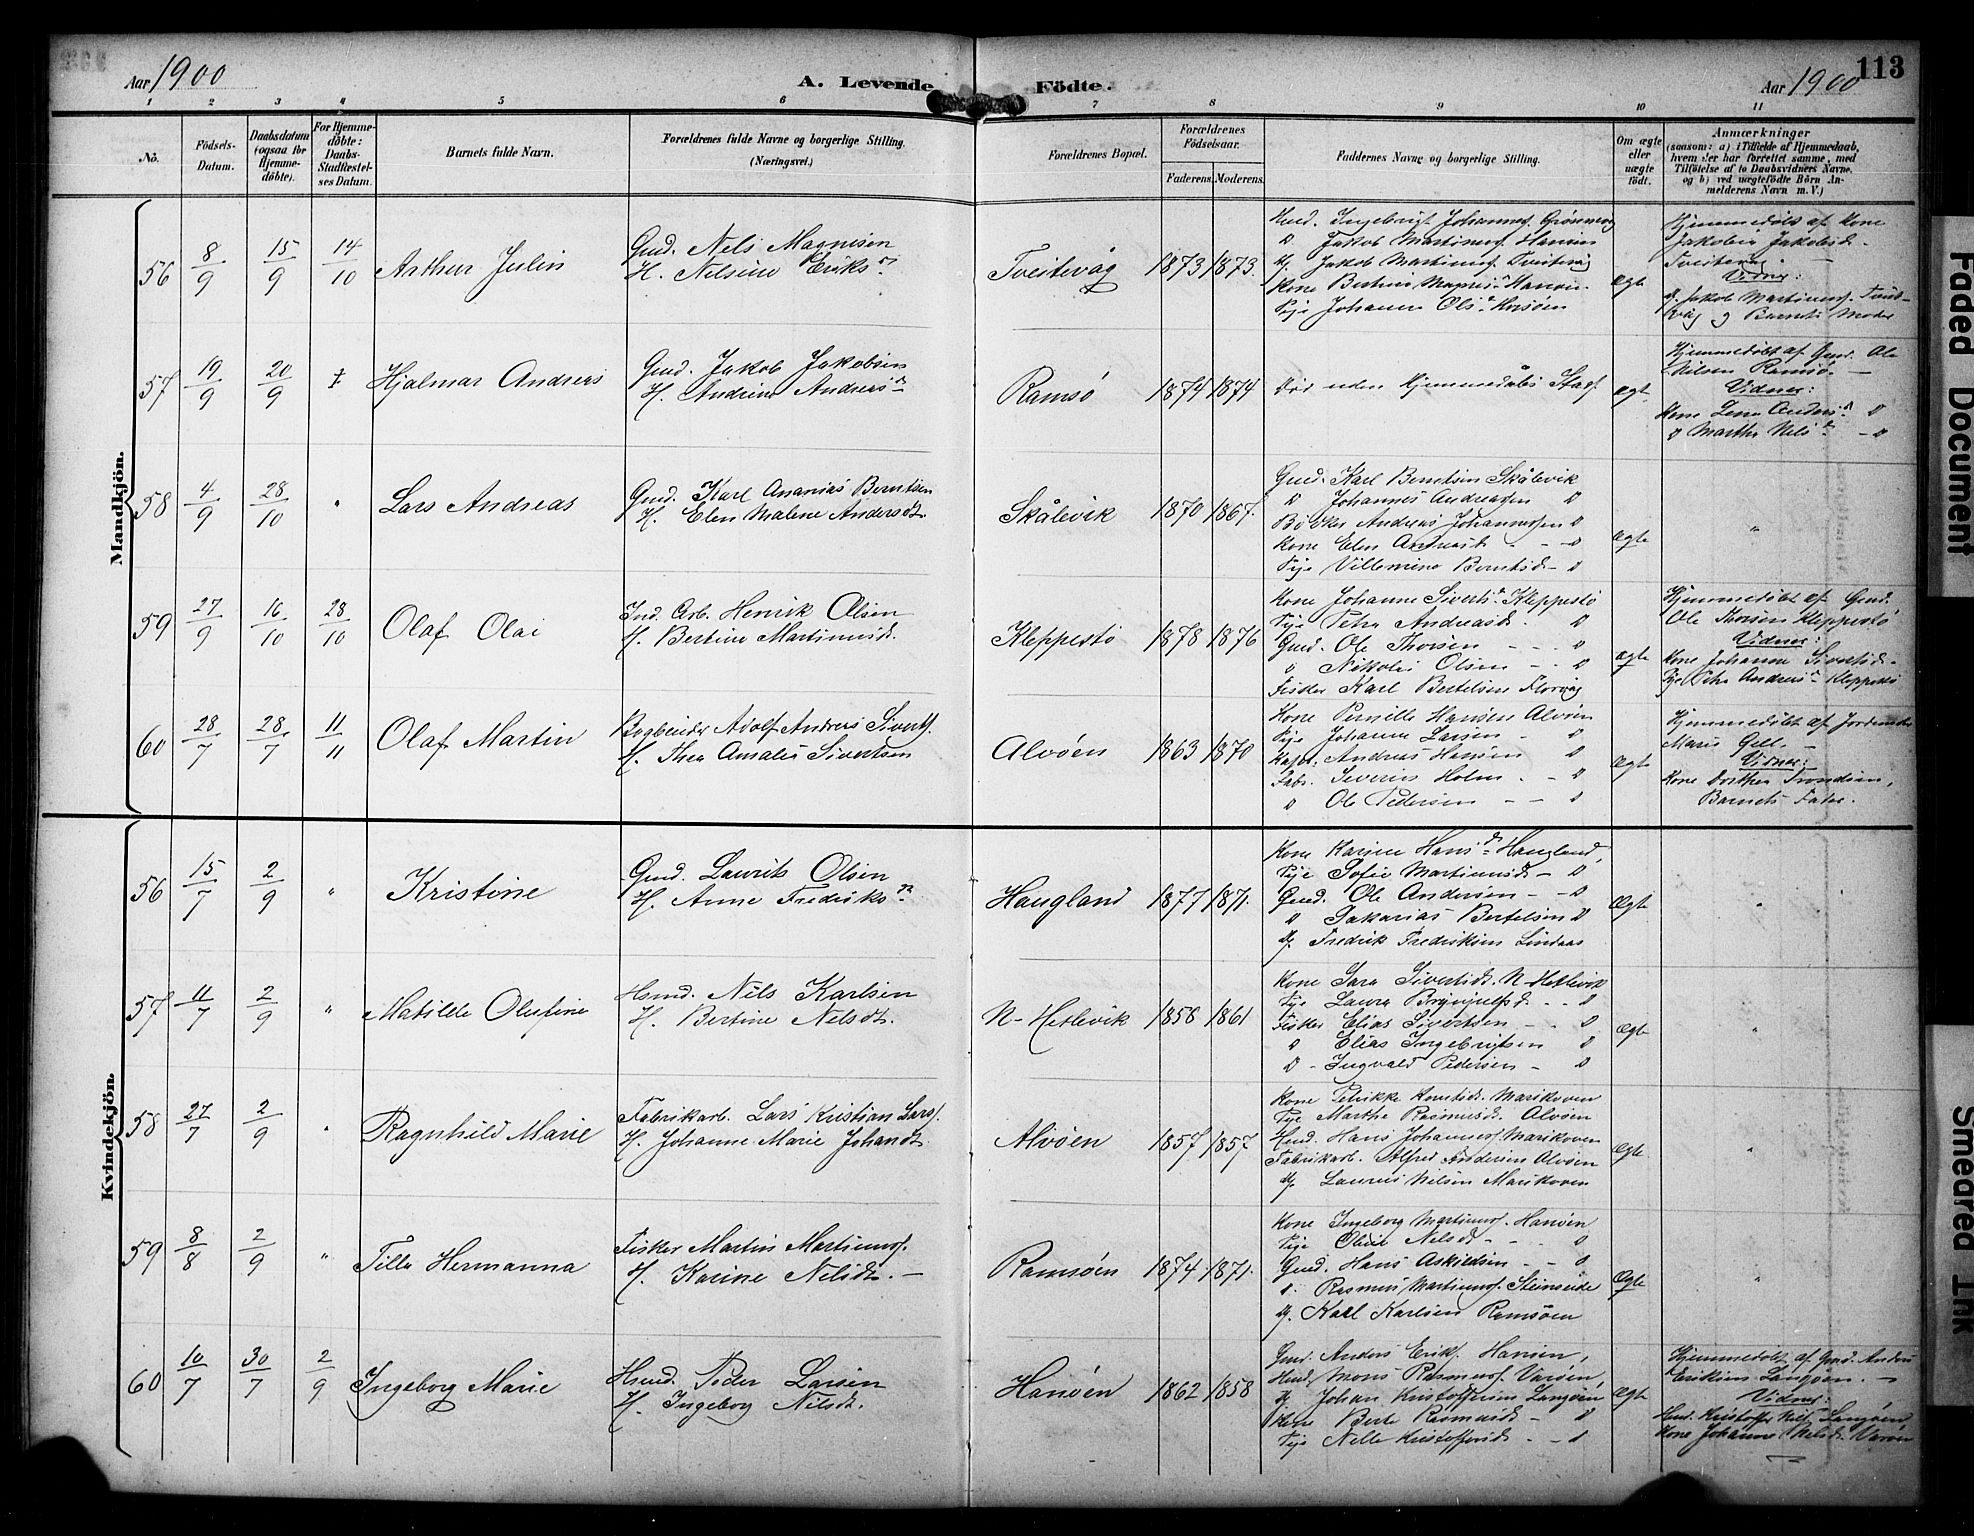 Aar 1900
A. Levende
Födte.
Aar 1900
113
1 2 3 4 5 6 7 8 9 10 11
No.
Födsels-Datum.
Daabsdatum (ogsaa for Hjemme-döbte).
For Hjemme-döbte: Daabs-Stadfæstel-ses Datum.
Barnets fulde Navn.
Forældrenes fulde Navne og borgerlige Stilling.
(Næringsvei.)
Forældrenes Bopæl.
Forældrenes Födselsaar.
Faderens. Moderens.
Faddernes Navne og borgerlige Stilling.
Om ægte eller uægte födt.
Anmærkninger
(saasom: a) i Tilfælde af Hjemmedaab,
hvem der har forrettet samme, med
Tilföielse af to Daabsvidners Navne,
og b) ved uægtefödte Börn An-
melderens Navn m. V.)
Mandkjön.
56 8/9 15/9 14/10 Arthur Julin
Gmd. Nels Magnisen
H. Nelsine Eriksdr
Tveitevåg 1873 1873.
Hmd. Ingebrigt Johannes. Grønnevig
D Jakob Martinus. Hansen
Uf. Jakob Martinus. Tveitevåg
Kone Berthe Magnisdr Hanøen
Pige Johanne Olsdr Horsøen
Ægte
Hjemmedøbt af Kone
Jakobia Jakobsd.
Tveitevåg. —
Vidner:
Uf. Jakob Martinus. Tveite-
våg og Barnets Moder
57 19/9 20/9 ‡ Hjalmar Andreas
Gmd. Jakob Jakobsen
H. Andrine Andersdr
Ramsø 1874 1874
Død uden Hjemmedåbs Stadf.
Ægte
Hjemmedøbt af Gmd. Ole
Nilsen Ramsø. —
Vidner:
Kone Lena Andersdr D
D Martha Nelsdr — D
58 4/9 28/10 " Lars Andreas
Gmd. Karl Ananias Berntsen
H. Elen Malene Andersdt.
Skålevik 1870 1867.
Gmd. Karl Berntsen Skålevik
D Johannes Andreasen D
Bødker Andreas Johannessen D
Kone Elen Andreasd. - - D
Pige Villemine Berntsd. - D
Ægte "
59 27/9 16/10 28/10 Olaf Olai
Ind. Arb. Henrik Olsen
H. Bertine Martinusd.
Kleppestø 1878 1876
Kone Johanne Sivertsdr Kleppestø
Pige Petra Andreasd. D
Gmd. Ole Thorsen - - - D
D Nikolai Olsen - - D
Fisker Karl Bertelsen Florvåg
Ægte
Hjemmedøbt af Gmd.
Ole Thorsen Kleppestø
Vidner:
Kone Johanne Sivertsd. -
Pige Petra Andreasdr Kleppestø
60 28/7 28/7 11/11 Olaf Martin
Bogbinder Adolf Andreas Siverts.
H. Thea Amalie Sivertsen
Alvøen 1863 1870
Kone Pernille Hansen Alvøen
Pige Johanne Larsen - D
Andreas Hansen D
Fabr. Severin Holm - - D
D Ole Pedersen - - D
Ægte
Hjemmedøbt af Jordemoder
Marie Gell. —
Vidner:
Kone Dorthea Trondsen,
Barnets Fader.
Kvindekjön.
56 15/7 2/9 " Kristine
Gmd. Laurits Olsen
H. Anne Fredriksdr
Haugland 1877 1871.
Kone Karine Hansdr Haugland,
Pige Sofie Martinusd - D
Gmd. Ole Andersen - - D
D Sakarias Bertelsen D
Uf. Fredrik Fredriksen Lindaas
Ægte "
57 11/7 2/9 " Matilde Olufine
Hsmd. Nils Karlsen
H. Bertine Nelsdt.
N-Hetlevik 1858 1861
Kone Sara Sivertsdt N-Hetlevik
Pige Laura Brynjulfsd. - - D
Fisker Elias Sivertsen - - D
D Elias Ingebrigtsen D
D - Ingvald Pedersen - D
Ægte "
58 27/7 2/9 " Ragnhild Marie
Fabrikarb. Lars Kristian Lars.
H. Johanne Marie Johansdt.
Alvøen 1857 1857
Kone Petrikke Knutsd. Marikoven
Pige Marthe Rasmusd. Alvøen
Hmd. Hans Johannes. Marikoven
Fabrikarb. Alfred Andersen Alvøen
Uf. Laurus Nilsen Marikoven
Ægte "
59 8/8 2/9 " Tilla Hermanna
Fisker Martin Martinus.
H. Karine Nelsdt. —
Ramsøen 1874 1871.
Kone Ingeborg Martinus. Hanøen
Pige Oline Nelsd. - - D
Gmd. Hans Askildsen - - D
D. Rasmus Martinus. Steinseide
Uf. Karl Karlsen Ramsøen
Ægte "
60 10/7 30/7 2/9 Ingeborg Marie
Hsmd. Peder Larsen
H. Ingeborg Nelsdt.
Hanøen 1862 1858
Gmd. Anders Eriks. Hansen,
Hmd. Mons Rasmus. Varøen,
Uf. Johan Kristoffersen Langøen
Kone Berte Rasmusd. - D
Pige Nelle Kristoffersd. - - D
Ægte
Hjemmedøbt af Gmd. Anders
Eriksen Langøen. —
Vidner:
Hmd. Kristoffer Nils. Langøen
Kone Johanne Nelsd. Varøen
Faded Document
Smeared Ink